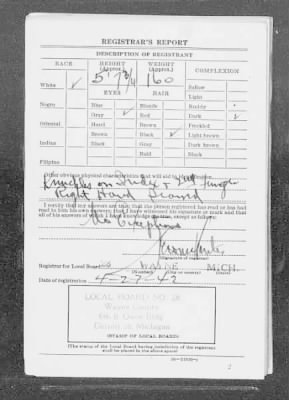 REGISTRAR'S REPORT
DESCRIPTION OF REGISTRANT
RACE HEIGHT (Approx.) WEIGHT (Approx.) COMPLEXION
5' 7 3/4 160
White ✓ Sallow
EYES HAIR Light
Negro Blue Blonde Ruddy
Gray ✓ Red Dark ✓
Oriental Hazel Brown Freckled
Brown Black ✓ Light brown
Indian Black Gray Dark brown
Bald Black
Filipino
Other obvious physical characteristics that will aid in identification
Knuckles on Index + 2nd finger
Right Hand Scarred
I certify that my answers are true; that the person registered has read or has had
read to him his own answers; that I have witnessed his signature or mark and that
all of his answers of which I have knowledge are true, except as follows:
No Exceptions
(Signature of registrar)
Registrar for Local Board 28 WAYNE MICH.
(Number) (City or county) (State)
Date of registration 4-27-42
LOCAL BOARD NO. 28
Wayne County
Detroit 26, Michigan
(STAMP OF LOCAL BOARD)
(The stamp of the Local Board having jurisdiction of the registrant
shall be placed in the above space)
2